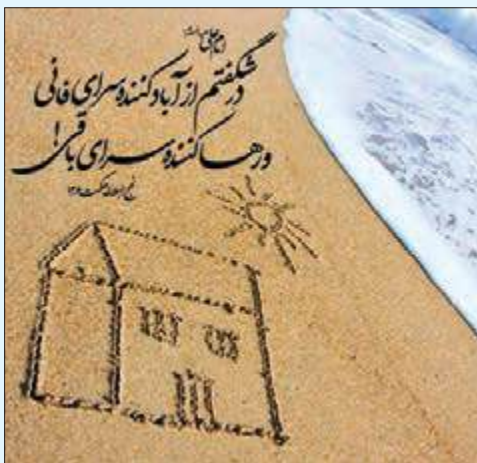 امام علی
در شگفتم از آباد کننده سرای فانی
و رها کننده سرای باقی!
نهج البلاغه حکمت